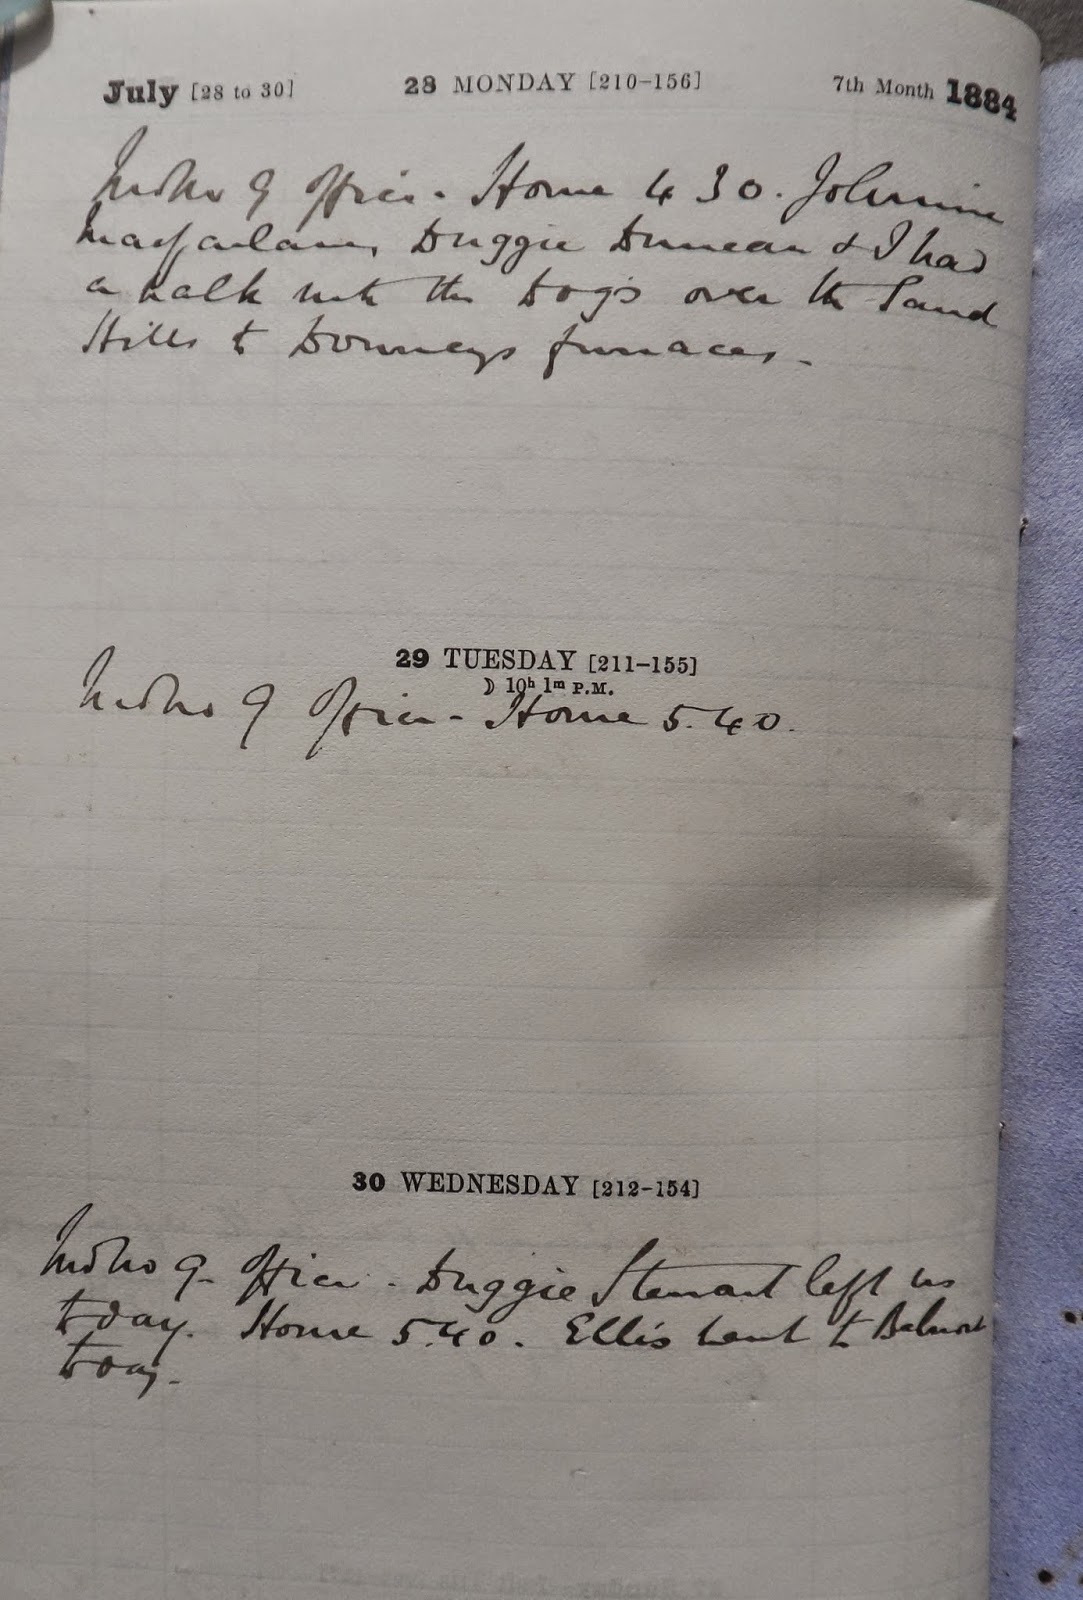 July [28 to 30] 28 MONDAY [210–156] 7th Month 1884
9 Office - Home 4 30. Johnnie
Macfarlane, Duggie Duncan & I had
a walk with the Dogs over the Sand
Hills to furnaces.
29 TUESDAY [211–155]
☽ 10h 1m P.M.
9 Office - Home 5.40.
30 WEDNESDAY [212–154]
9 - Office - Duggie Stewart left us
today. Home 5.40. Ellis went to Belmont
today.